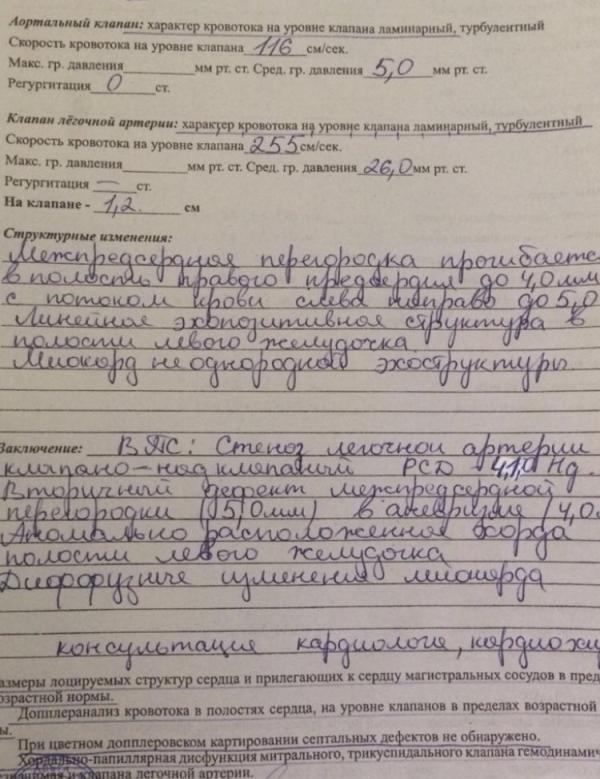 Аортальный клапан: характер кровотока на уровне клапана ламинарный, турбулентный
Скорость кровотока на уровне клапана 116 см/сек.
Макс. гр. давления мм рт. ст. Сред. гр. давления 5,0 мм рт. ст.
Регургитация 0 ст.
Клапан лёгочной артерии: характер кровотока на уровне клапана ламинарный, турбулентный
Скорость кровотока на уровне клапана 255 см/сек.
Макс. гр. давления мм рт. ст. Сред. гр. давления 26,0 мм рт. ст.
Регургитация — ст.
На клапане - 1,2 см
Структурные изменения:
Межпредсердная перегородка прогибается
в полость правого предсердия до 4,0 мм
с потоком крови слева направо до 5,0
Линейная эхопозитивная структура в
полости левого желудочка
Миокард неоднородной эхоструктуры.
Заключение: ВПС: Стеноз легочной артерии
клапано-надклапаный РСД
Вторичный дефект межпредсердной
перегородки (5,0мм) в аневризме (4,0
Аномально расположенная хорда
полости левого желудочка
Диффузные изменения миокарда
консультация кардиолога, кардиохи
азмеры лоцируемых структур сердца и прилегающих к сердцу магистральных сосудов в пред
озрастной нормы.
Допплеранализ кровотока в полостях сердца, на уровне клапанов в пределах возрастной
ы.
При цветном допплеровском картировании септальных дефектов не обнаружено.
Хордально-папиллярная дисфункция митрального, трикуспидального клапана гемодинамич
и клапана легочной артерии.